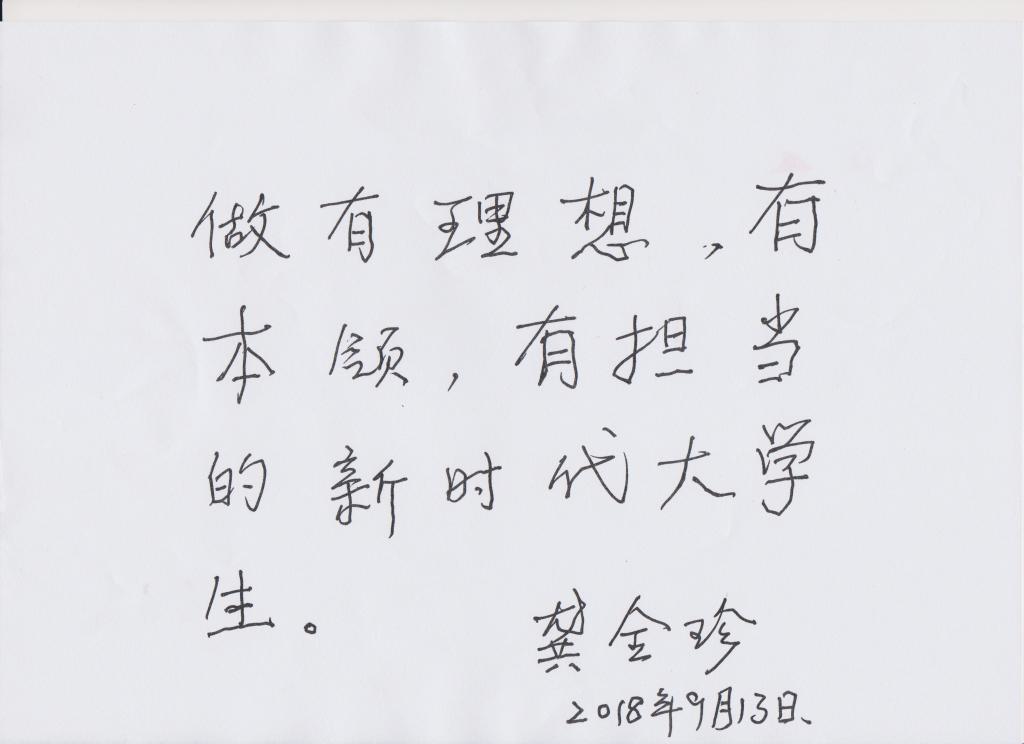 做有理想,有
本领,有担当
的新时代大学
生。
龚全珍
2018年9月13日、